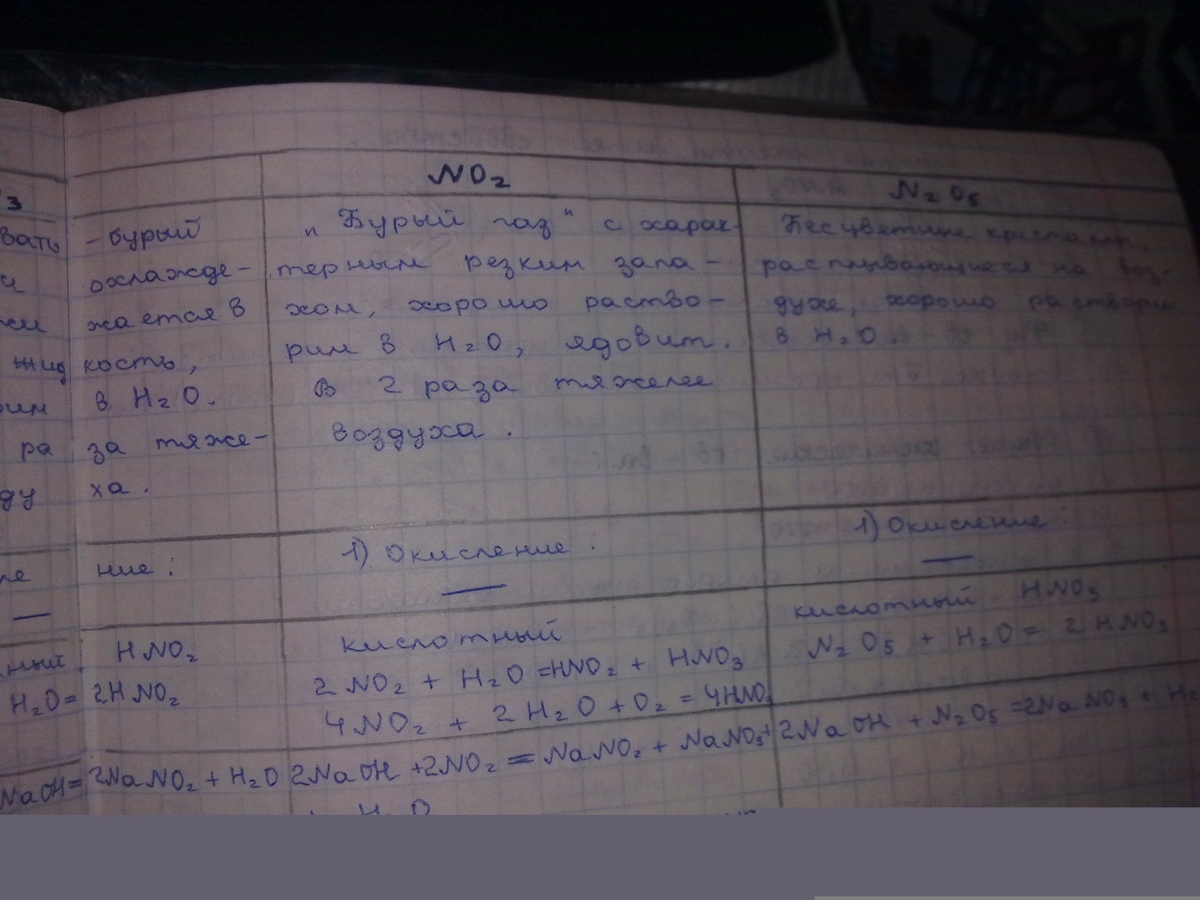 NO₂
N₂O₅
з
вать - бурый
охлажде-
жается в
жид кость,
в H₂O.
ра за тяже-
ду ха.
„Бурый газ" с харак-
терным резким запа-
хом, хорошо раство-
рим в H₂O, ядовит.
В 2 раза тяжелее
воздуха.
Бесцветные
расплывающиеся на воз-
духе, хорошо
в H₂O.
ние:
—
1) Окисление:
—
1) Окисление:
—
HNO₂
H₂O = 2HNO₂
кислотный
2NO₂ + H₂O = HNO₂ + HNO₃
4NO₂ + 2H₂O + O₂ = 4HNO₃
кислотный HNO₃
N₂O₅ + H₂O = 2HNO₃
NaOH = 2NaNO₂ + H₂O
2NaOH + 2NO₂ = NaNO₂ + NaNO₃ +
+ H₂O
2NaOH + N₂O₅ = 2NaNO₃ + H₂